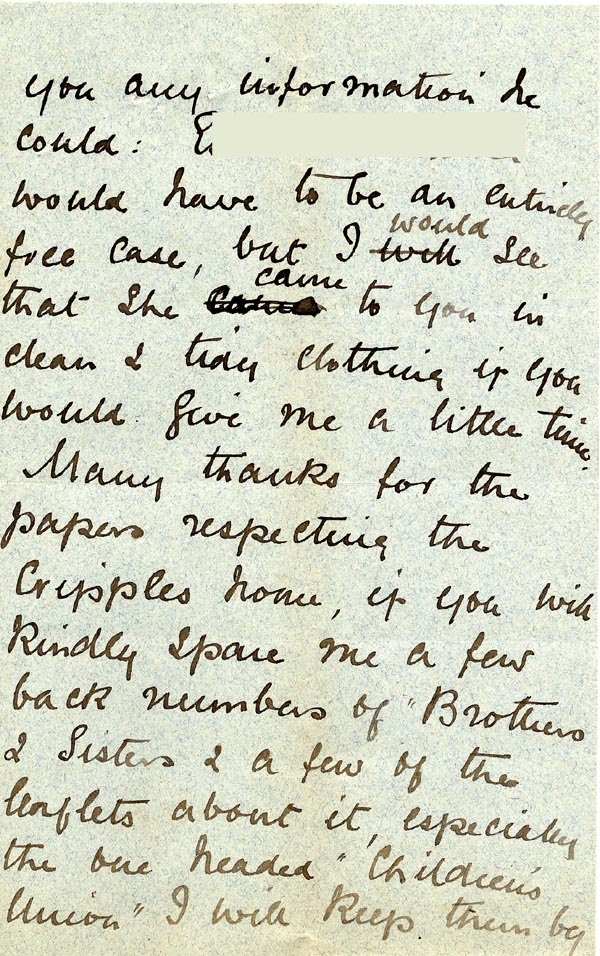 you any information he
could: E
would have to be an entirely
free case, but I will would see
that she came came to you in
clean & tidy clothing if you
would give me a little time.
Many thanks for the
papers respecting the
Cripples home, if you will
kindly spare me a few
back numbers of "Brothers
& Sisters & a few of the
leaflets about it, especially
the one headed "Children's
Union" I will keep them by